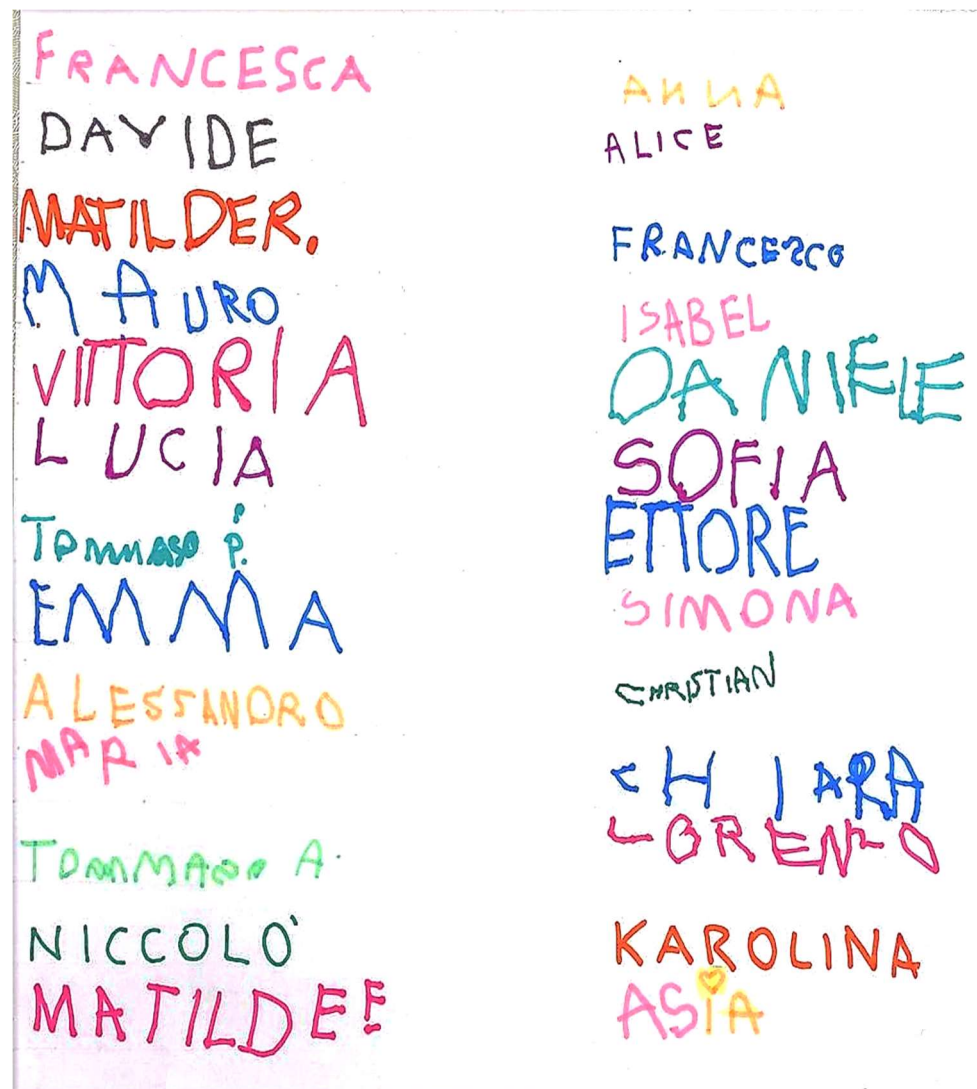 FRANCESCA
DAVIDE
MATILDE R.
MAURO
VITTORIA
LUCIA
TOMMASO P.
EMMA
ALESSANDRO
MARIA
TOMMASO A.
NICCOLO'
MATILDE F
ANNA
ALICE
FRANCESCO
ISABEL
DANIELE
SOFIA
ETTORE
SIMONA
CHRISTIAN
CHIARA
LORENZO
KAROLINA
ASIA